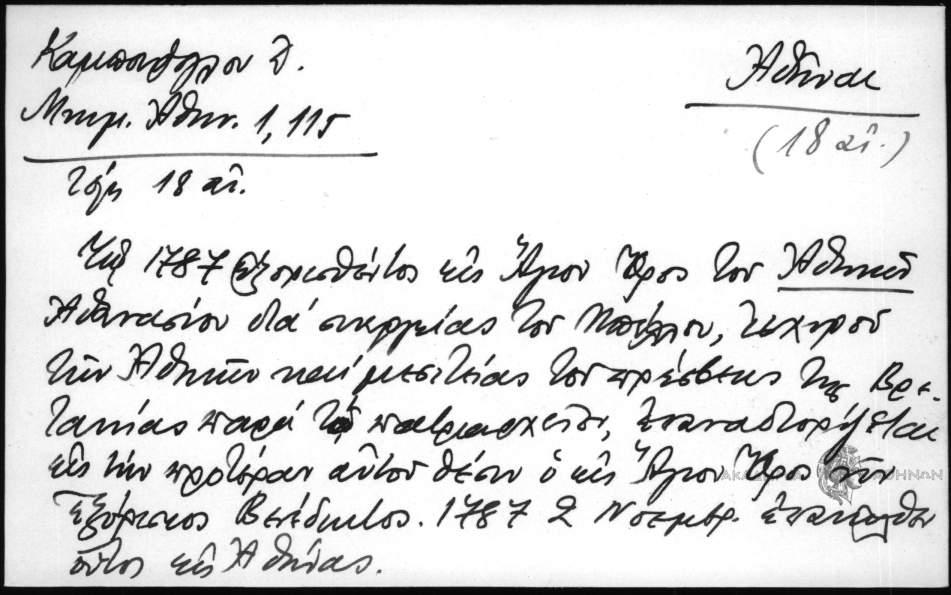 Καμπούρογλου Δ.
Μνημ. Ἀθην. 1, 115
Τέλη 18 αἰ.
Ἀθῆναι
(18 αἰ.)
Τῷ 1787 ἐξορισθέντος εἰς Ἅγιον Ὄρος τοῦ Ἀθηνῶν
Ἀθανασίου διά ἐνεργείας τοῦ Μπέλλου, ἰσχυροῦ
τῶν Ἀθηνῶν καί μεσιτείας τοῦ πρέσβεως τῆς Βρε-
τανίας παρά τῷ πατριαρχείῳ, ἐπαναδιορίζεται
εἰς τήν προτέραν αὐτοῦ θέσιν ὁ εἰς Ἅγιον Ὄρος
ἐξόριστος Βενέδικτος. 1787 2 Νοεμβρ. ἐπανῆλθεν
οὗτος εἰς Ἀθήνας.
ΑΚΑΔΗΜΙΑ ΑΘΗΝΩΝ